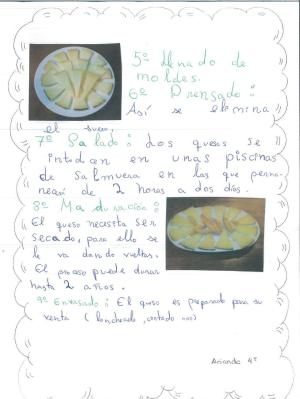 5º Llenado de
moldes.
6º Prensado:
Así se elimina
el suero.
7º Salado: Los quesos se
intodcen en unas piscinas
de salmuera en las que perma-
necerá de 2 horas a dos días.
8º Maduración:
El queso necesita ser
secado, para ello se
le va dando vueltas.
El proceso puede durar
hasta 2 años.
9º Envasado: El queso es preparado para su
venta (loncheado, cortado ...)
4º